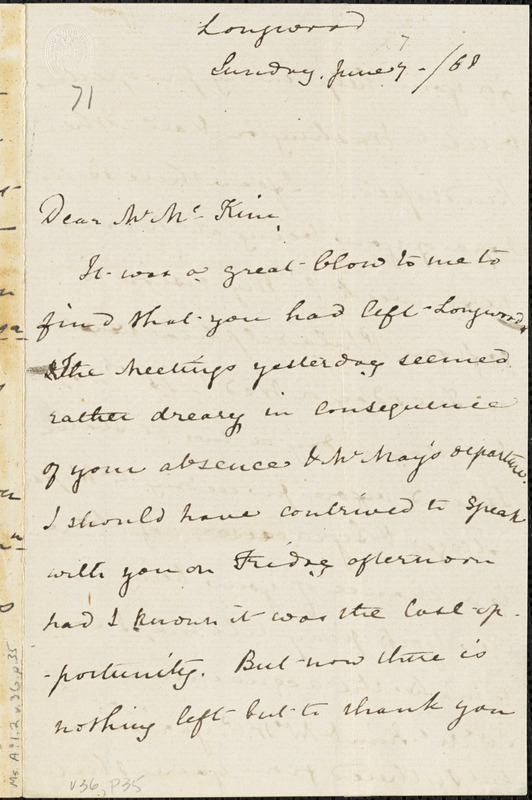 Longwood
Sunday. June 7 - /68
7
71
Dear Mr. Mc. Kim,
It was a great blow to me to
find that you had left Longwood,
& The Meetings yesterday seemed
rather dreary in consequence
of your absence & Mr May's departure.
I should have contrived to speak
with you on Friday afternoon
had I known it was the last op-
-portunity. But now there is
nothing left but to thank you
Ms. A.1.2 v.36, p.35
v36, P35